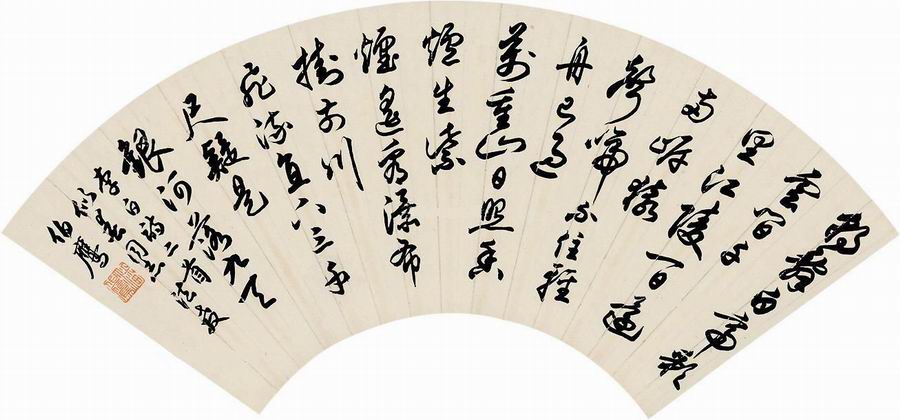 朝辭白帝彩
雲間千
里江陵一日還
兩岸猿
聲啼不住輕
舟已過
萬重山日照香
爐生紫
煙遙看瀑布
掛前川
飛流直下三千
尺疑是
銀河落九天
李白詩二首
同志
伯鷹